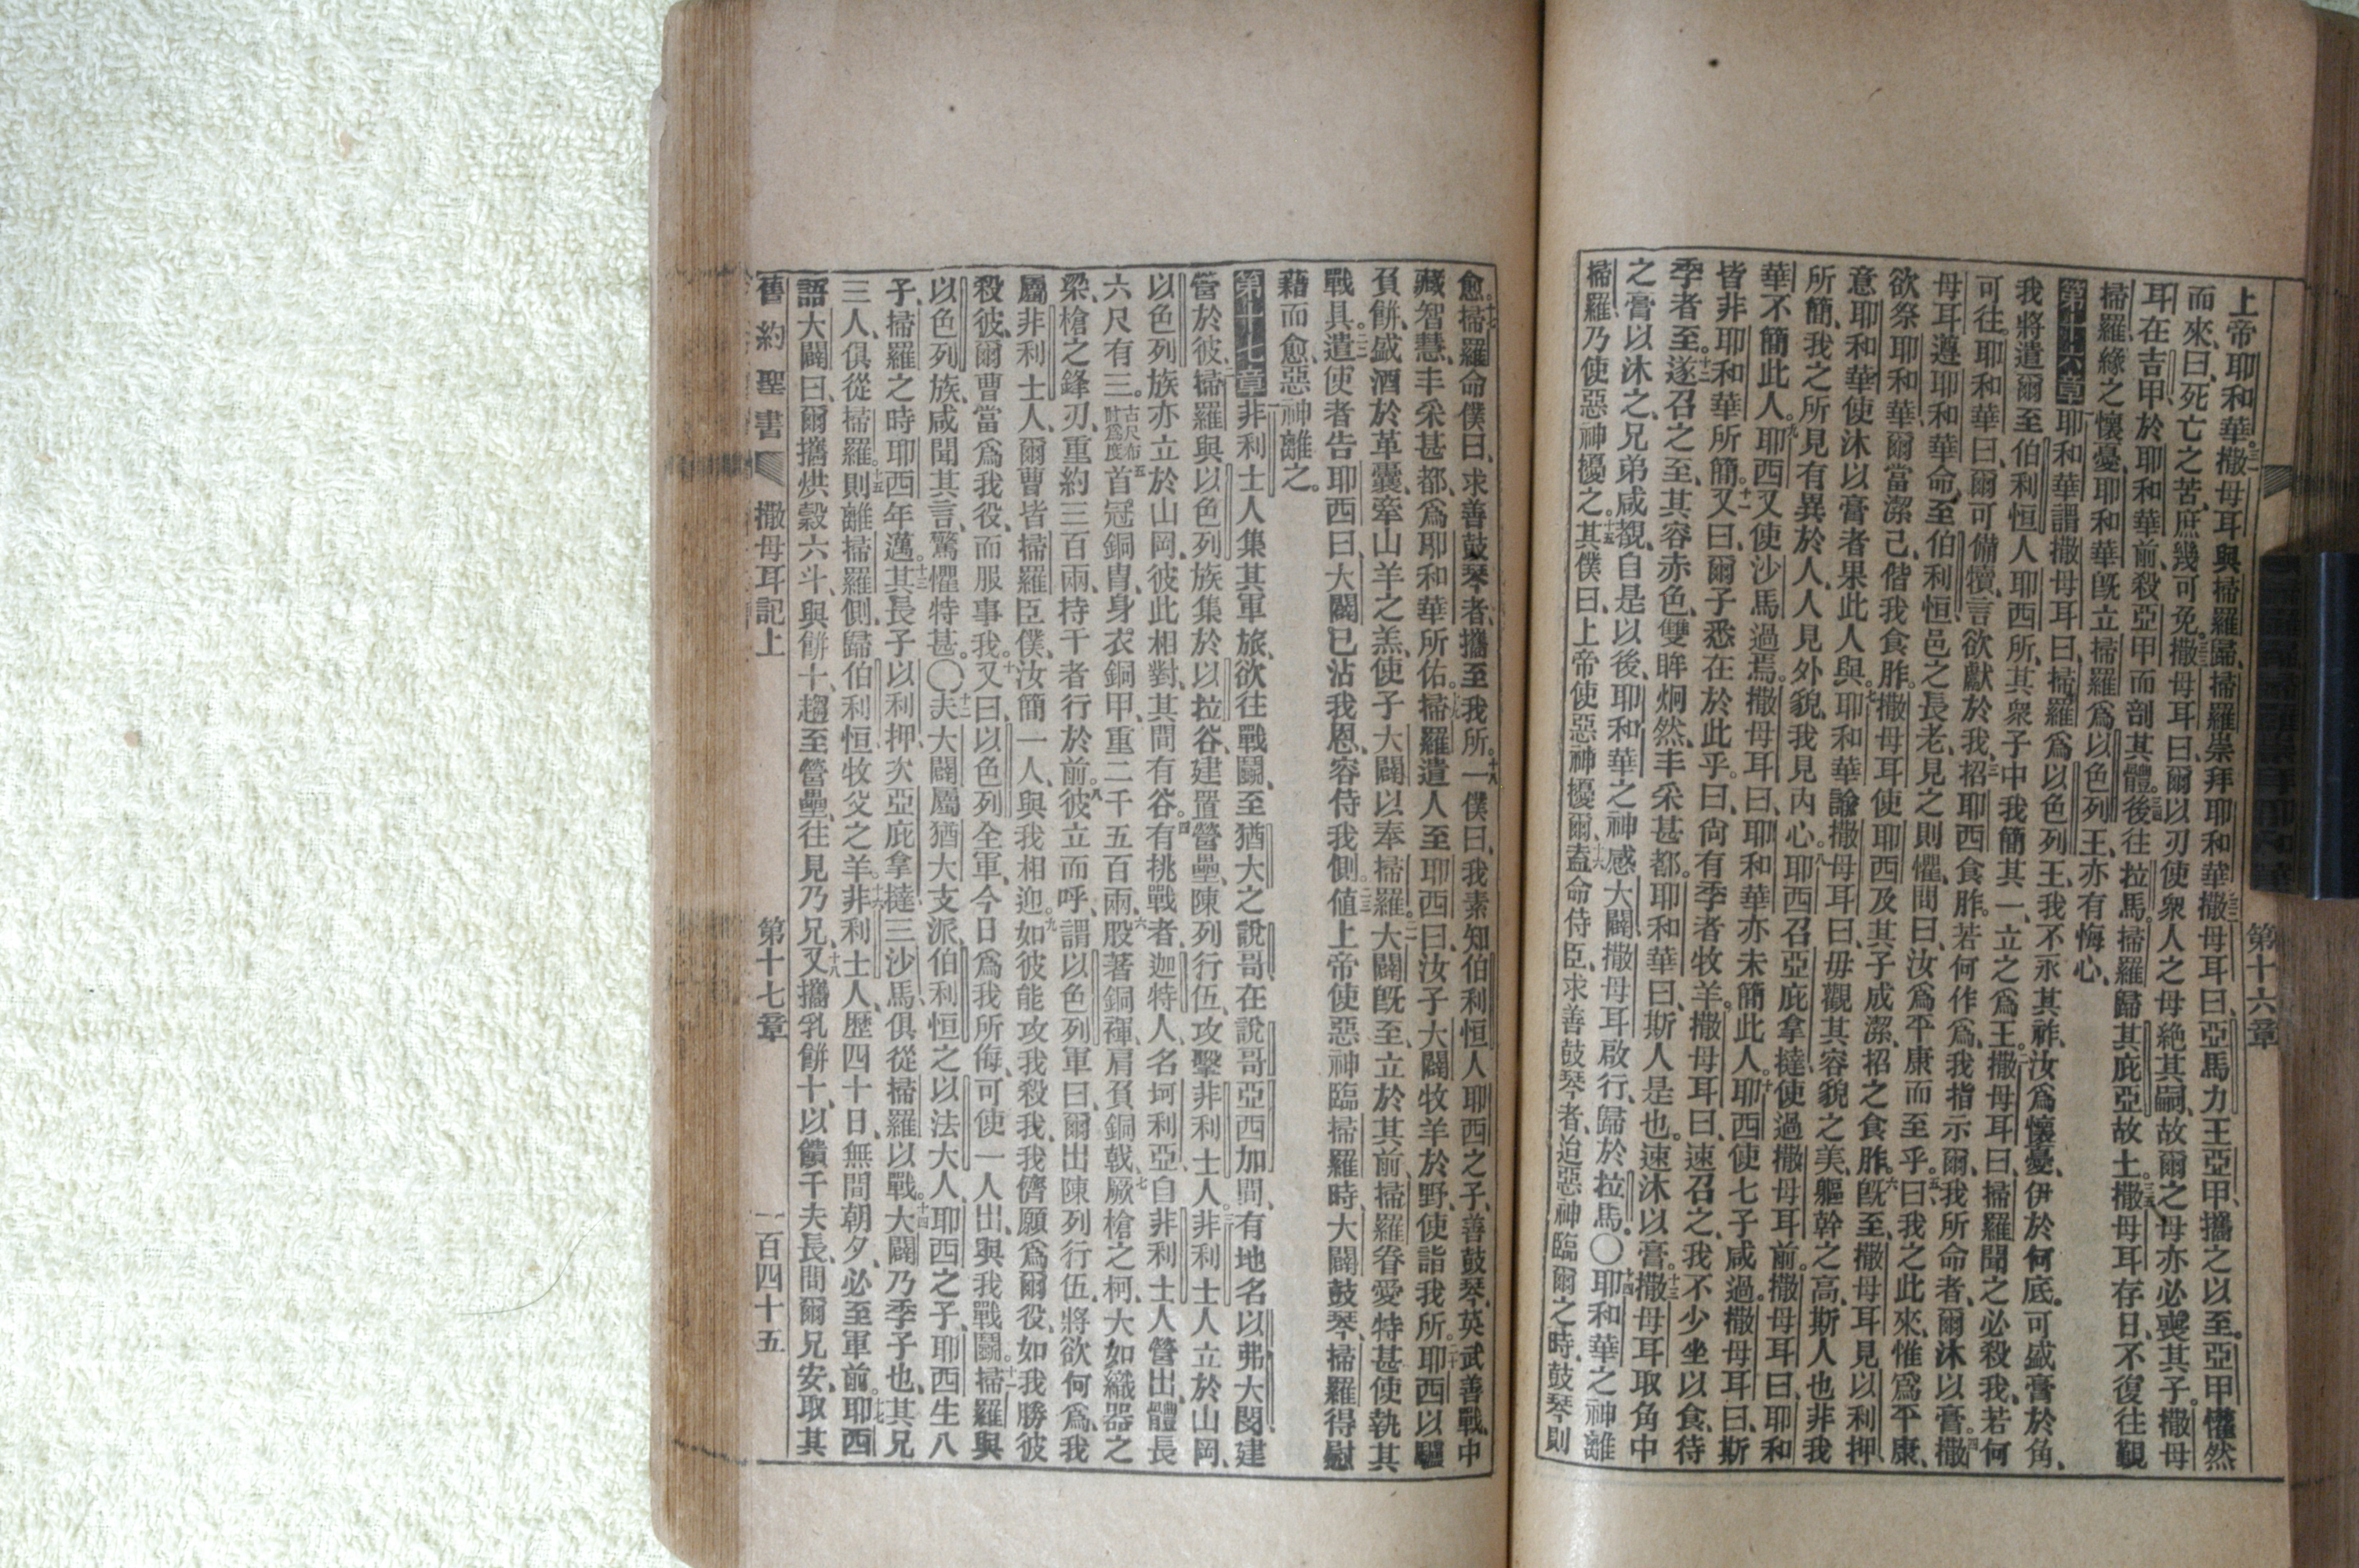 第十六章
上帝耶和華、撒母耳與掃羅歸、掃羅崇拜耶和華、撒母耳曰、亞馬力王亞甲、攜之以至、亞甲懽然
而來、曰、死亡之苦、庶幾可免。撒母耳曰、爾以刃使衆人之母絕其嗣、故爾之母亦必喪其子。撒母
耳在吉甲、於耶和華前、殺亞甲而剖其體。後往拉馬。掃羅歸其庇亞故土。撒母耳存日、不復往覲
掃羅、緣之懷憂、耶和華旣立掃羅爲以色列王、亦有悔心、
第十六章 耶和華謂撒母耳曰、掃羅爲以色列王、我不永其祚、汝爲懷憂、伊於何底。可盛膏於角、
我將遣爾至伯利恒人耶西所、其衆子中我簡其一、立之爲王。撒母耳曰、掃羅聞之必殺我、若何
可往。耶和華曰、爾可備犢、言欲獻於我、招耶西食胙。若何作爲、我指示爾、我所命者、爾沐以膏。撒
母耳遵耶和華命、至伯利恒邑之長老、見之則懼、問曰、汝爲平康而至乎。曰我之此來、惟爲平康、
欲祭耶和華、爾當潔己、偕我食胙。撒母耳使耶西及其子成潔、招之食胙。旣至、撒母耳見以利押、
意耶和華使沐以膏者果此人與。耶和華諭撒母耳曰、毋觀其容貌之美、軀幹之高、斯人也非我
所簡、我之所見有異於人、人見外貌、我見內心。耶西召亞庇拿撻、使過撒母耳前。撒母耳曰、耶和
華不簡此人。耶西又使沙馬過焉。撒母耳曰、耶和華亦未簡此人。耶西使七子咸過。撒母耳曰、斯
皆非耶和華所簡。又曰、爾子悉在於此乎。曰、尙有季者牧羊。撒母耳曰、速召之、我不少坐以食、待
季者至。遂召之至、其容赤色、雙眸炯然、丰采甚都。耶和華曰、斯人是也、速沐以膏。撒母耳取角中
之膏以沐之、兄弟咸覩、自是以後、耶和華之神感大闢、撒母耳啟行、歸於拉馬。〇耶和華之神離
掃羅、乃使惡神擾之。其僕曰、上帝使惡神擾爾、盍命侍臣、求善鼓琴者、迨惡神臨爾之時、鼓琴則
愈。掃羅命僕曰、求善鼓琴者、攜至我所。一僕曰、我素知伯利恒人耶西之子、善鼓琴、英武善戰、中
藏智慧、丰采甚都、爲耶和華所佑。掃羅遣人至耶西曰、汝子大闢牧羊於野、使詣我所。耶西以驢
負餅、盛酒於革囊、牽山羊之羔、使子大闢以奉掃羅。大闢旣至、立於其前、掃羅眷愛特甚、使執其
戰具。遣使者告耶西曰、大闢已沾我恩、容侍我側。値上帝使惡神臨掃羅時、大闢鼓琴、掃羅得慰
藉而愈、惡神離之。
第十七章 非利士人集其軍旅、欲往戰鬭、至猶大之說哥、在說哥亞西加間、有地名以弗大閔、建
營於彼、掃羅與以色列族集於以拉谷、建置營壘、陳列行伍、攻擊非利士人。非利士人立於山岡、
以色列族亦立於山岡、彼此相對、其間有谷。有挑戰者、迦特人、名坷利亞、自非利士人營出、體長
六尺有三。古尺布肘爲度首冠銅胄、身衣銅甲、重二千五百兩、股著銅褌、肩負銅戟、厥槍之柯、大如織器之
梁、槍之鋒刃、重約三百兩、持干者行於前。彼立而呼、謂以色列軍曰、爾出陳列行伍、將欲何爲、我
屬非利士人、爾曹皆掃羅臣僕、汝簡一人、與我相迎。如彼能攻我殺我、我儕願爲爾役、如我勝彼
殺彼、爾曹當爲我役、而服事我。又曰、以色列全軍、今日爲我所侮、可使一人出、與我戰鬭。掃羅與
以色列族、咸聞其言、驚懼特甚。〇夫大闢屬猶大支派、伯利恒之以法大人、耶西之子、耶西生八
子、掃羅之時、耶西年邁。其長子以利押、次亞庇拿撻、三沙馬、俱從掃羅以戰。大闢乃季子也、其兄
三人、俱從掃羅。則離掃羅側、歸伯利恒、牧父之羊。非利士人、歷四十日、無間朝夕、必至軍前。耶西
語大闢曰、爾攜烘穀六斗、與餅十、趨至營壘、往見乃兄、又攜乳餅十、以饋千夫長、問爾兄安、取其
舊約聖書 撒母耳記上 第十七章 一百四十五